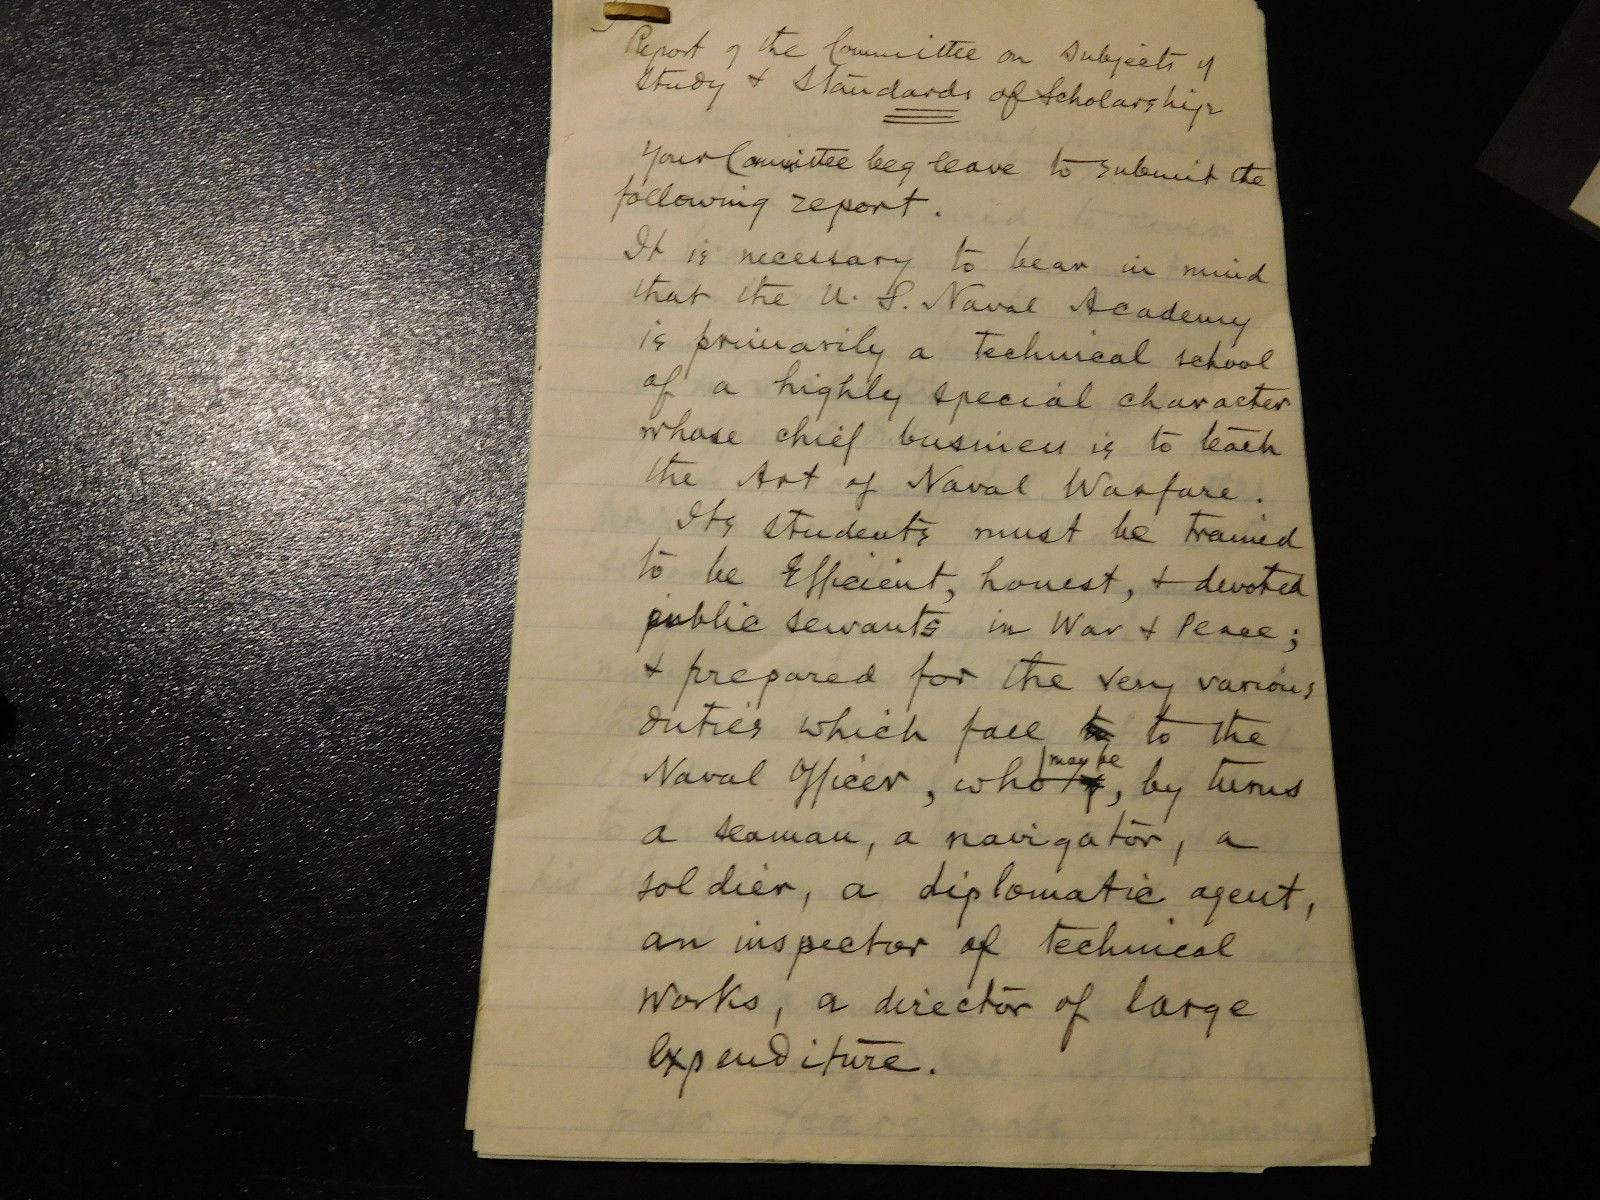 Report of the Committee on Subjects of
Study & Standards of Scholarship
Your Committee beg leave to submit the
following report.
It is necessary to bear in mind
that the U. S. Naval Academy
is primarily a technical school
of a highly special character
whose chief business is to teach
the Art of Naval Warfare.
Its students must be trained
to be Efficient, honest, & devoted
public servants in War & Peace;
& prepared for the very various
duties which fall to the
may be
Naval Officer, who, by turns
a seaman, a navigator, a
soldier, a diplomatic agent,
an inspector of technical
works, a director of large
expenditure.